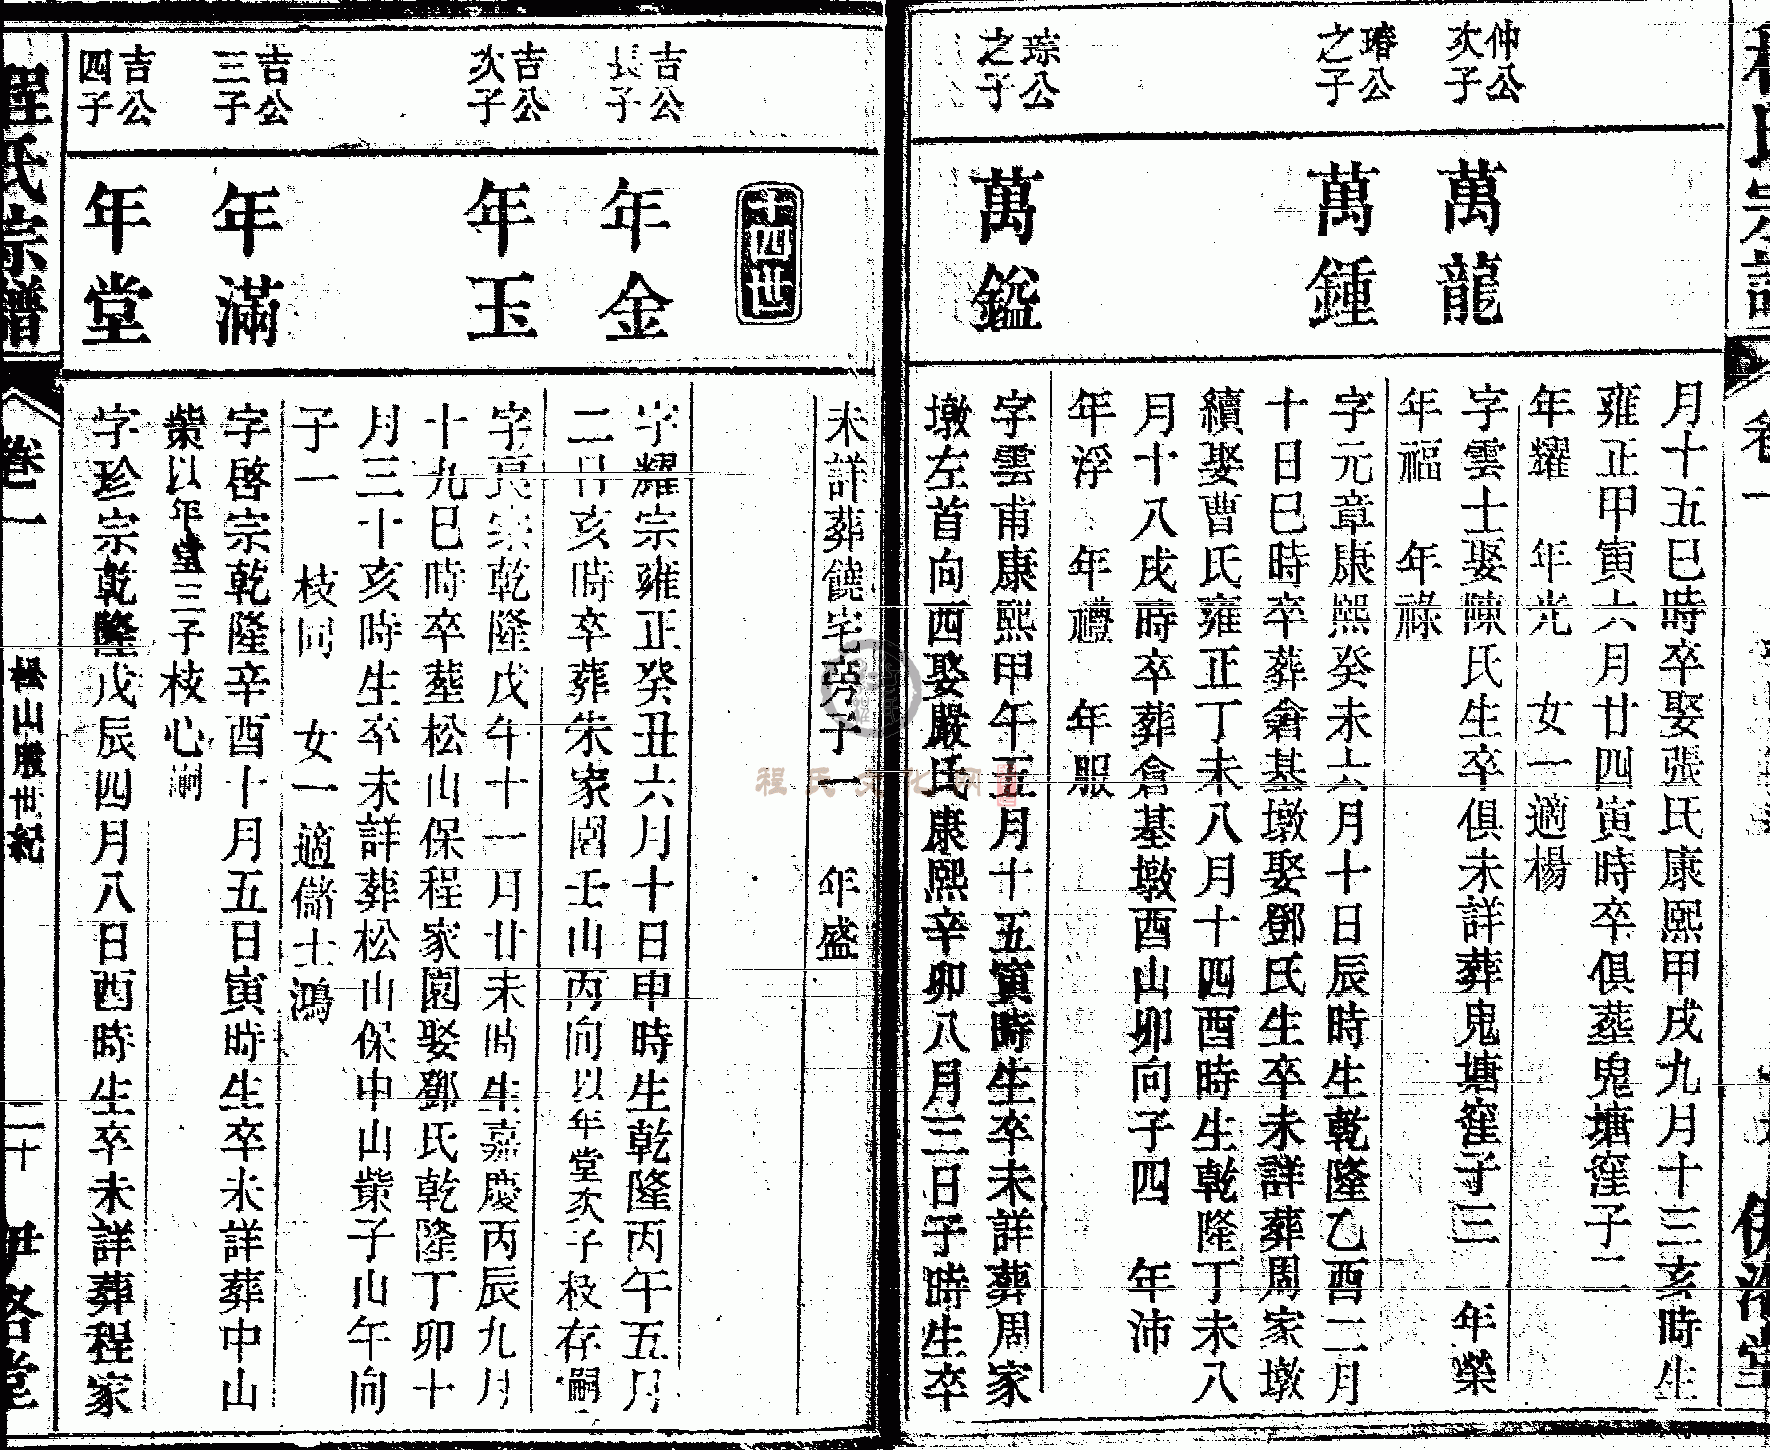 仲公
次子
萬龍
月十五巳時卒娶張氏康熙甲戌九月十三亥時生
雍正甲寅六月廿四寅時卒俱葬鬼塘窪子二
年耀 年光 女一適楊
璿公
之子
萬鍾
字雲士娶陳氏生卒俱未詳葬鬼塘窪子三 年榮
年福 年祿
字元章康熙癸未六月十日辰時生乾隆乙酉二月
十日巳時卒葬倉基墩娶鄧氏生卒未詳葬周家墩
續娶曹氏雍正丁未八月十四酉時生乾隆丁未八
月十八戌時卒葬倉基墩酉山卯向子四 年沛
年浮 年禮 年服
琮公
之子
萬鎰
字雲甫康熙甲午五月十五寅時生卒未詳葬周家
墩左首向西娶嚴氏康熙辛卯八月三日子時生卒
未詳葬饒宅旁子一 年盛
十四世
吉公
長子
年金
字耀宗雍正癸丑六月十日申時生乾隆丙午五月
二日亥時卒葬朱家園壬山丙向以年堂次子枝存嗣
吉公
次子
年玉
字良宗乾隆戊午十一月廿未時生嘉慶丙辰九月
十九巳時卒葬松山保程家園娶鄧氏乾隆丁卯十
月三十亥時生卒未詳葬松山保中山柴子山午向
子一 枝同 女一適儲士鴻
吉公
三子
年滿
字啓宗乾隆辛酉十月五日寅時生卒未詳葬中山
柴以年堂三子枝心嗣
吉公
四子
年堂
字珍宗乾隆戊辰四月八日酉時生卒未詳葬程家
程氏宗譜
卷一
松山殷世紀
二十
伊洛堂